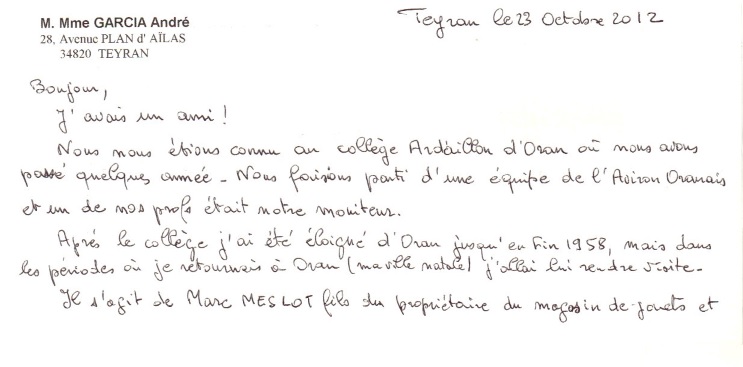 M. Mme GARCIA André
28, Avenue PLAN d' AÏLAS
34820 TEYRAN
Teyran le 23 Octobre 2012
Bonjour,
J'avais un ami !
Nous nous étions connu au collège Ardaillon d'Oran où nous avons
passé quelques année - Nous faisions parti d'une équipe de l'Aviron Oranais
et un de nos profs était notre moniteur.
Aprés le collège j'ai été éloigné d'Oran jusqu'en Fin 1958, mais dans
les périodes où je retournais à Oran (ma ville natale) j'allai lui rendre visite.
Il s'agit de Marc MESLOT fils du propriétaire du magasin de jouets et